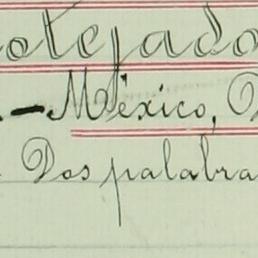 otejado
— México, D
Dos palabra